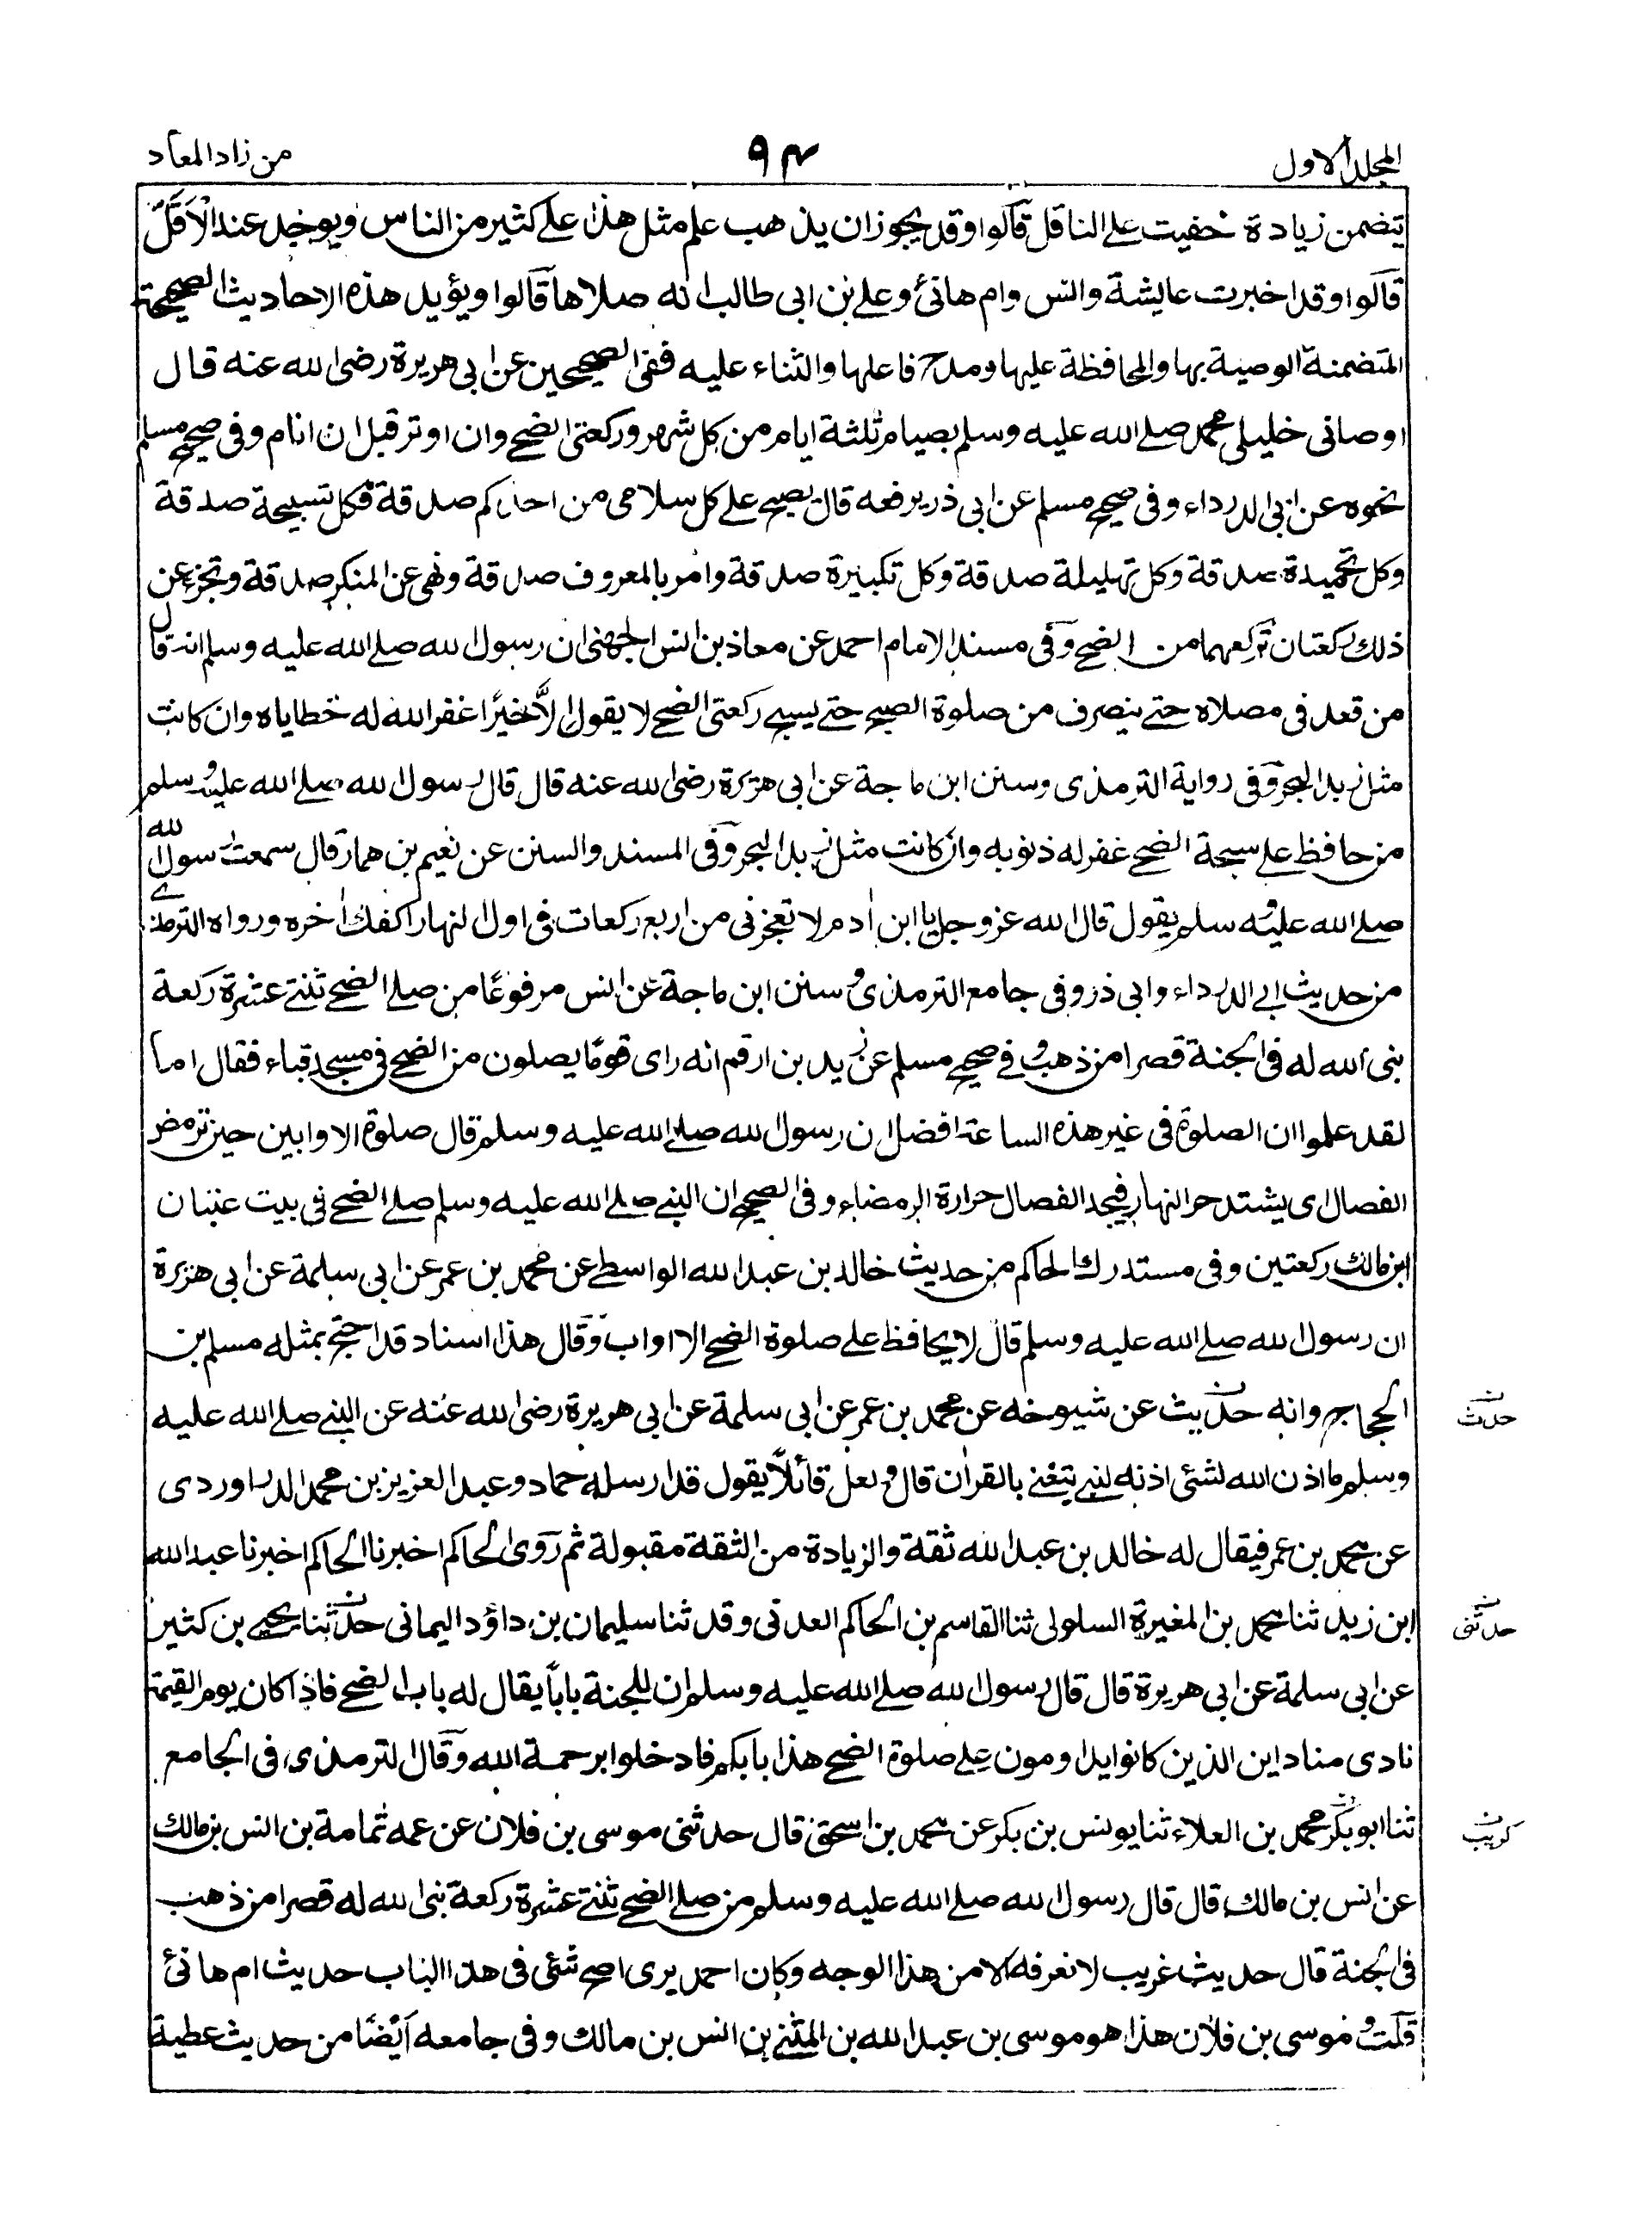 المجلد الاول
٩٤
من زاد المعاد
يتضمن زيادة خفيت على الناقل قالوا وقد يجوز ان يذهب علم مثل هذا على كثير من الناس ويوجد عند الاقل
قالوا وقد اخبرت عايشة وانس وام هانئ وعلى بن ابى طالب انه صلاها قالوا ويؤيد هذه الاحاديث الصحيحة
المتضمنة الوصية بها والمحافظة عليها ومدح فاعلها والثناء عليه ففى الصحيحين عن ابى هريرة رضى الله عنه قال
اوصانى خليلى محمد صلى الله عليه وسلم بصيام ثلثة ايام من كل شهر وركعتى الضحى وان اوتر قبل ان انام وفى صحيح مسلم
نحوه عن ابى الدرداء وفى صحيح مسلم عن ابى ذر يرفعه قال يصبح على كل سلامى من احدكم صدقة فكل تسبيحة صدقة
وكل تحميدة صدقة وكل تهليلة صدقة وكل تكبيرة صدقة وامر بالمعروف صدقة ونهى عن المنكر صدقة وتجزئ عن
ذلك ركعتان تركعهما من الضحى وفى مسند الامام احمد عن معاذ بن انس الجهنى ان رسول الله صلى الله عليه وسلم انه قال
من قعد فى مصلاه حتى ينصرف من صلوة الصبح حتى يسبح ركعتى الضحى لا يقول الا خيرًا غفر الله له خطاياه وان كانت
مثل زبد البحر وفى رواية الترمذى وسنن ابن ماجة عن ابى هريرة رضى الله عنه قال قال رسول الله صلى الله عليه وسلم
من حافظ على سبحة الضحى غفر له ذنوبه وان كانت مثل زبد البحر وفى المسند والسنن عن نعيم بن همار قال سمعت رسول الله
صلى الله عليه وسلم يقول قال الله عز وجل يا ابن اٰدم لا تعجزنى من اربع ركعات فى اول النهار اكفك اٰخره ورواه الترمذى
من حديث ابى الدرداء وابى ذر وفى جامع الترمذى وسنن ابن ماجة عن انس مرفوعًا من صلى الضحى ثنتى عشرة ركعة
بنى الله له فى الجنة قصرا من ذهب وفى صحيح مسلم عن زيد بن ارقم انه راى قومًا يصلون من الضحى فى مسجد قباء فقال اما
لقد علموا ان الصلوة فى غير هذه الساعة افضل ان رسول الله صلى الله عليه وسلم قال صلوة الاوابين حين ترمض
الفصال اى يشتد حر النهار فيجد الفصال حرارة الرمضاء وفى الصحيح ان النبى صلى الله عليه وسلم صلى الضحى فى بيت عتبان
ابن مالك ركعتين وفى مستدرك الحاكم من حديث خالد بن عبد الله الواسطى عن محمد بن عمر عن ابى سلمة عن ابى هريرة
ان رسول الله صلى الله عليه وسلم قال لا يحافظ على صلوة الضحى الا اواب وقال هذا اسناد قد احتج بمثله مسلم بن
الحجاج وانه حديث عن شيوخه عن محمد بن عمر عن ابى سلمة عن ابى هريرة رضى الله عنه عن النبى صلى الله عليه
حدث
وسلم ما اذن الله لشئ اذنه لنبى يتغنى بالقراٰن قال ولعل قائلًا يقول قد ارسله حماد وعبد العزيز بن محمد الدراوردى
عن محمد بن عمر فيقال له خالد بن عبد الله ثقة والزيادة من الثقة مقبولة ثم روى الحاكم اخبرنا الحاكم اخبرنا عبد الله
ابن زيد ثنا محمد بن المغيرة السلولى ثنا القاسم بن الحاكم العدنى وقد ثنا سليمان بن داؤد اليمانى حدثنا يحيى بن كثير
حدثنى
عن ابى سلمة عن ابى هريرة قال قال رسول الله صلى الله عليه وسلم ان للجنة بابًا يقال له باب الضحى فاذا كان يوم القيمة
نادى مناد اين الذين كانوا يداومون على صلوة الضحى هذا بابكم فادخلوا برحمة الله وقال الترمذى فى الجامع
ثنا ابو بكر محمد بن العلاء ثنا يونس بن بكر عن محمد بن اسحق قال حدثنى موسى بن فلان عن عمه ثمامة بن انس بن مالك
كريب
عن انس بن مالك قال قال رسول الله صلى الله عليه وسلم من صلى الضحى ثنتى عشرة ركعة بنى الله له قصرا من ذهب
فى الجنة قال حديث غريب لا نعرفه الا من هذا الوجه وكان احمد يرى اصح شئى فى هذا الباب حديث ام هانئ
قلت وموسى بن فلان هذا هو موسى بن عبد الله بن المثنى بن انس بن مالك وفى جامعه ايضًا من حديث عطية